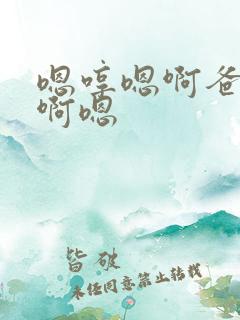 嗯哼嗯啊爸
啊嗯
皆破
未经同意禁止转载